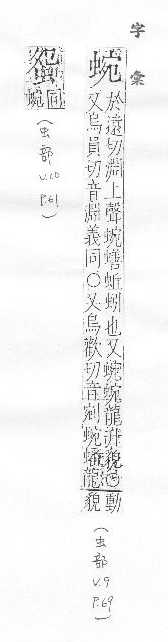 字彙
蜿
於遠切淵上聲蜿蟺蚯蚓也又蜿蜿龍貌○動
又烏員切音淵義同○又烏歡切音剜蜿蟠龍貌
(虫部 V.9 P.69)
同
蜿
(虫部 V.10 P.61)